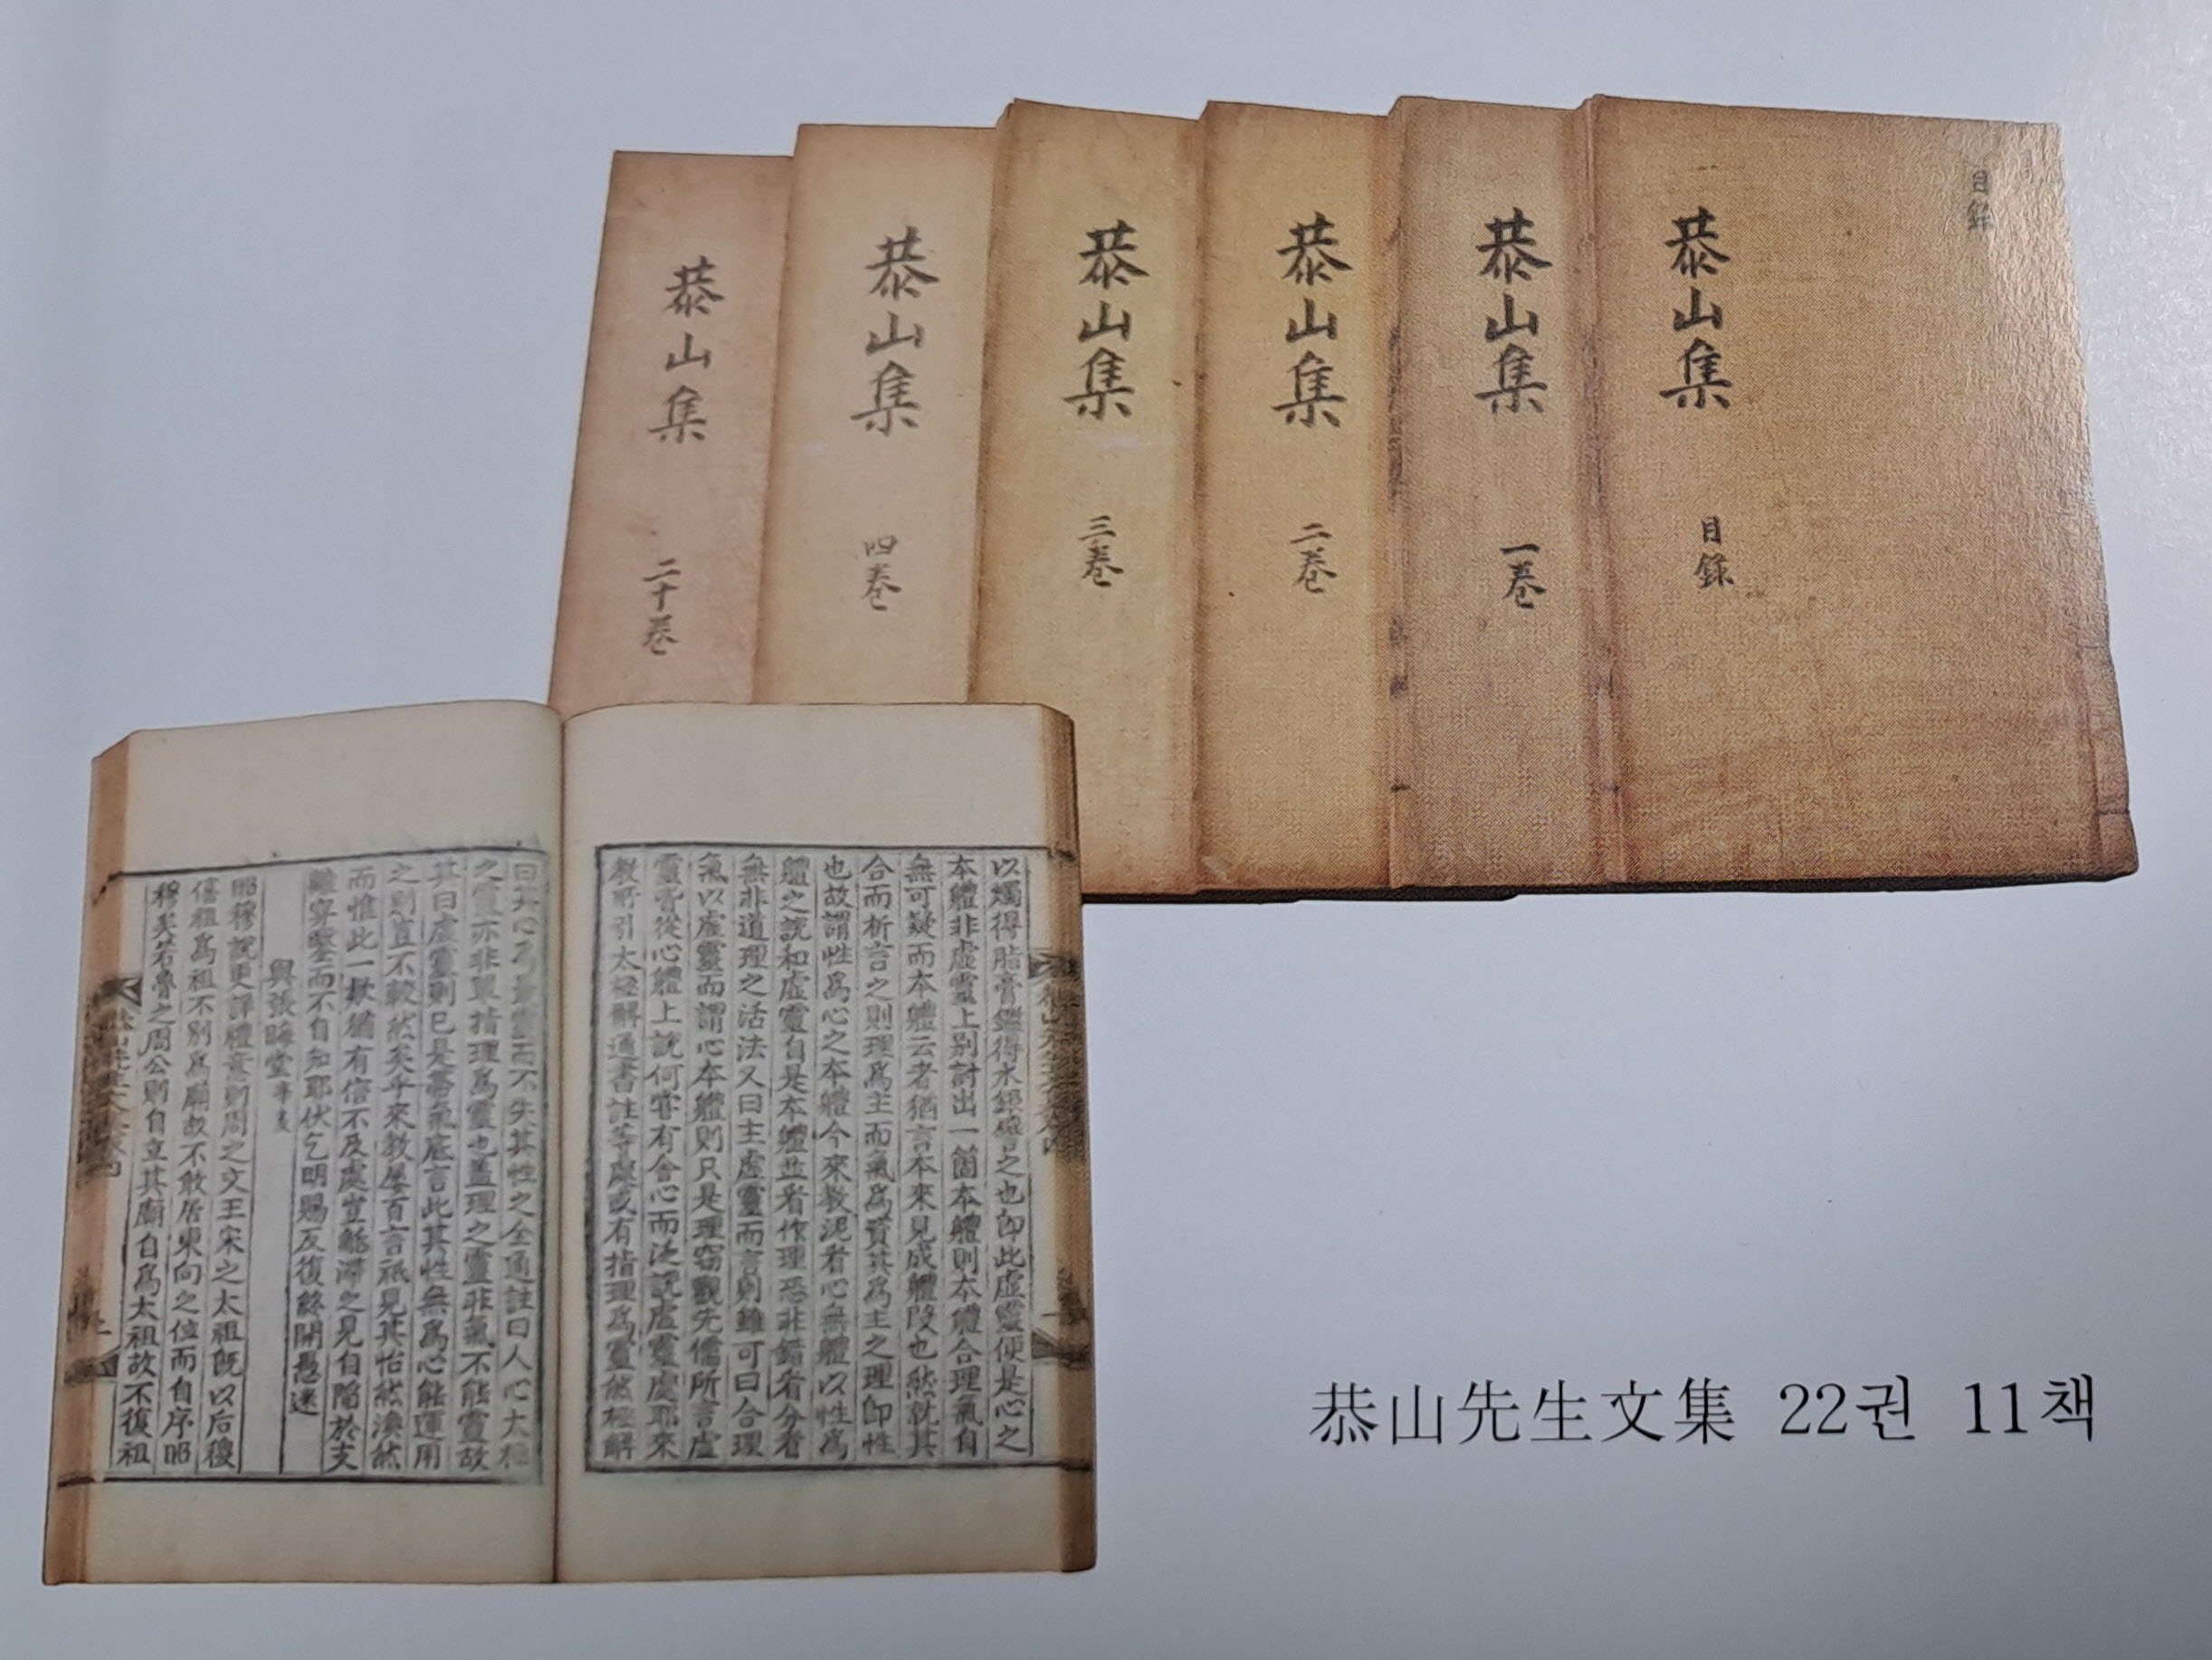 恭山集
目錄
目錄
恭山集
一卷
恭山集
二卷
恭山集
三卷
恭山集
四卷
恭山集
二十卷
以燭得脂膏鑑得水銀礎言之也卽此虛靈便是心之
本體非虛靈上別討出一箇本體則本體合理氣自
無可疑而本體云者猶言本來見成體段也然就其
合而析言之則理爲主而氣爲資其爲主之理卽性
也故謂性爲心之本體今來敎泥看心無體以性爲
體之說和虛靈自是本體並看作理恐非錯看分看
無非道理之活法又曰主虛靈而言則雖可曰合理
氣以虛靈而謂心本體則只是理竊觀先儒所言虛
靈皆從心體上說何嘗有舍心而泛說虛靈處耶來
敎所引太極解通書註等處或有指理爲靈然極解
曰其心爲最靈而不失其性之全通註曰人心太極
之靈亦非單指理爲靈也蓋理之靈非氣不能靈故
其曰虛靈則已是帶氣底言此其性無爲心能運用
之則豈不較然矣乎來敎屢百言祇見其怡然渙然
而惟此一款猶有信不及處豈能滯之見自陷於支
離穿鑿而不自知耶伏乞明賜反復終開愚迷
與張晦堂
昭穆說更詳禮意則周之文王宋之太祖旣以后稷
僖祖爲祖不別爲廟故不敢居東向之位而自序昭
穆矣若魯之周公則自立其廟自爲太祖故不復祖
恭山先生文集 22권 11책